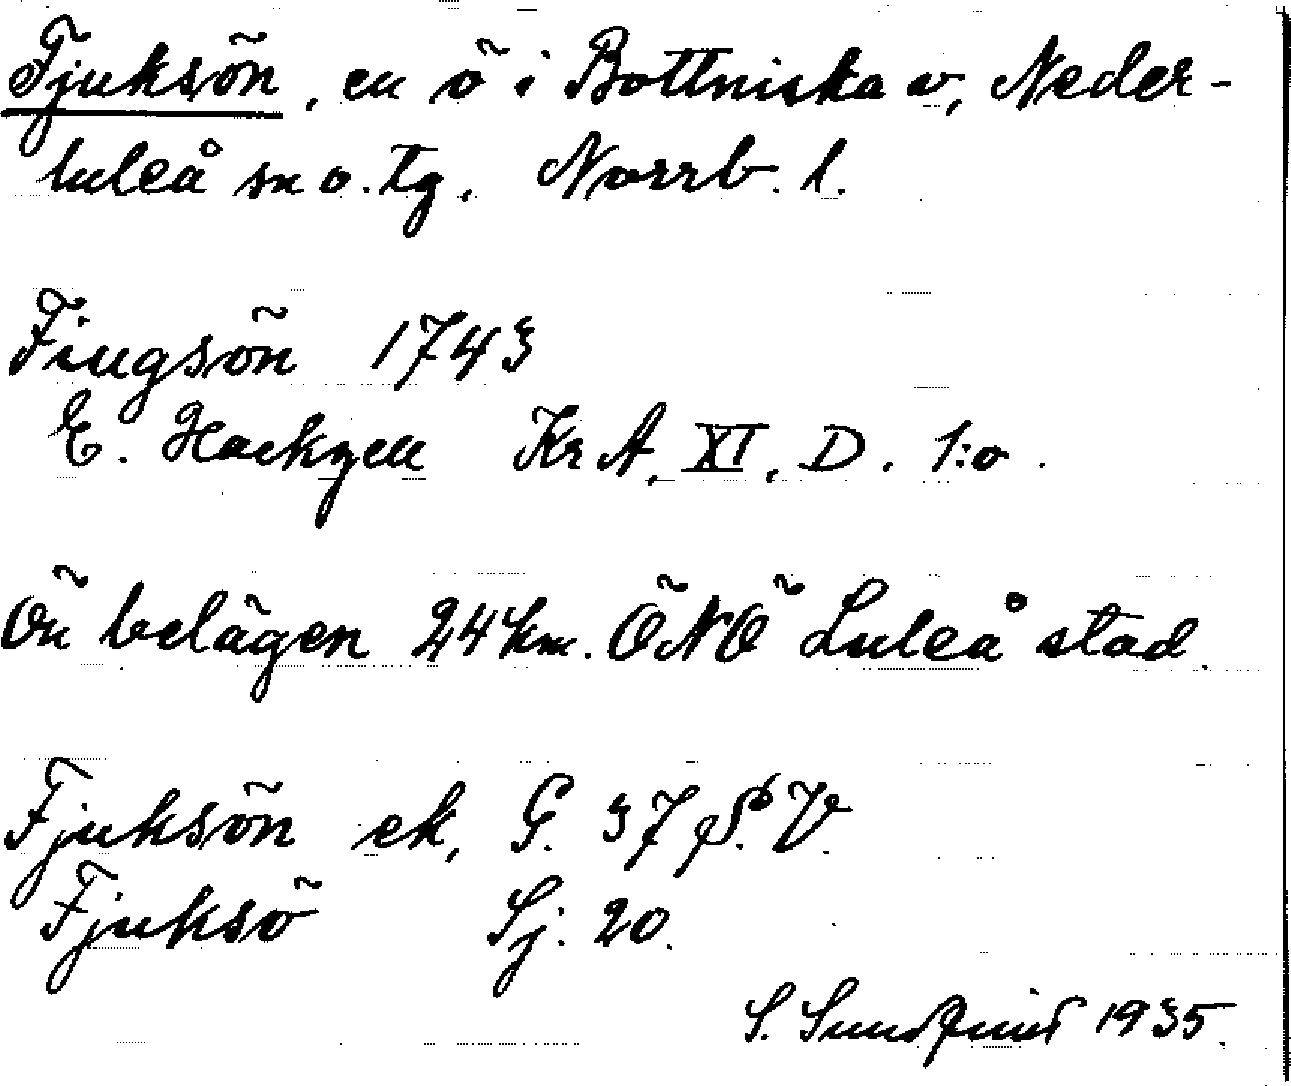 Fjuksön, en ö i Bottniska v, Neder-
luleå sn o. tg. Norrb. l.
Fiugsön 1743
E. Hackzell KrA, XI, D. 1:o.
Ön belägen 24 km. ÖNÖ Luleå stad.
Fjuksön ek, G. 37 S.V.
Fjuksö Sj. 20.
S. Sundqvist 1935.